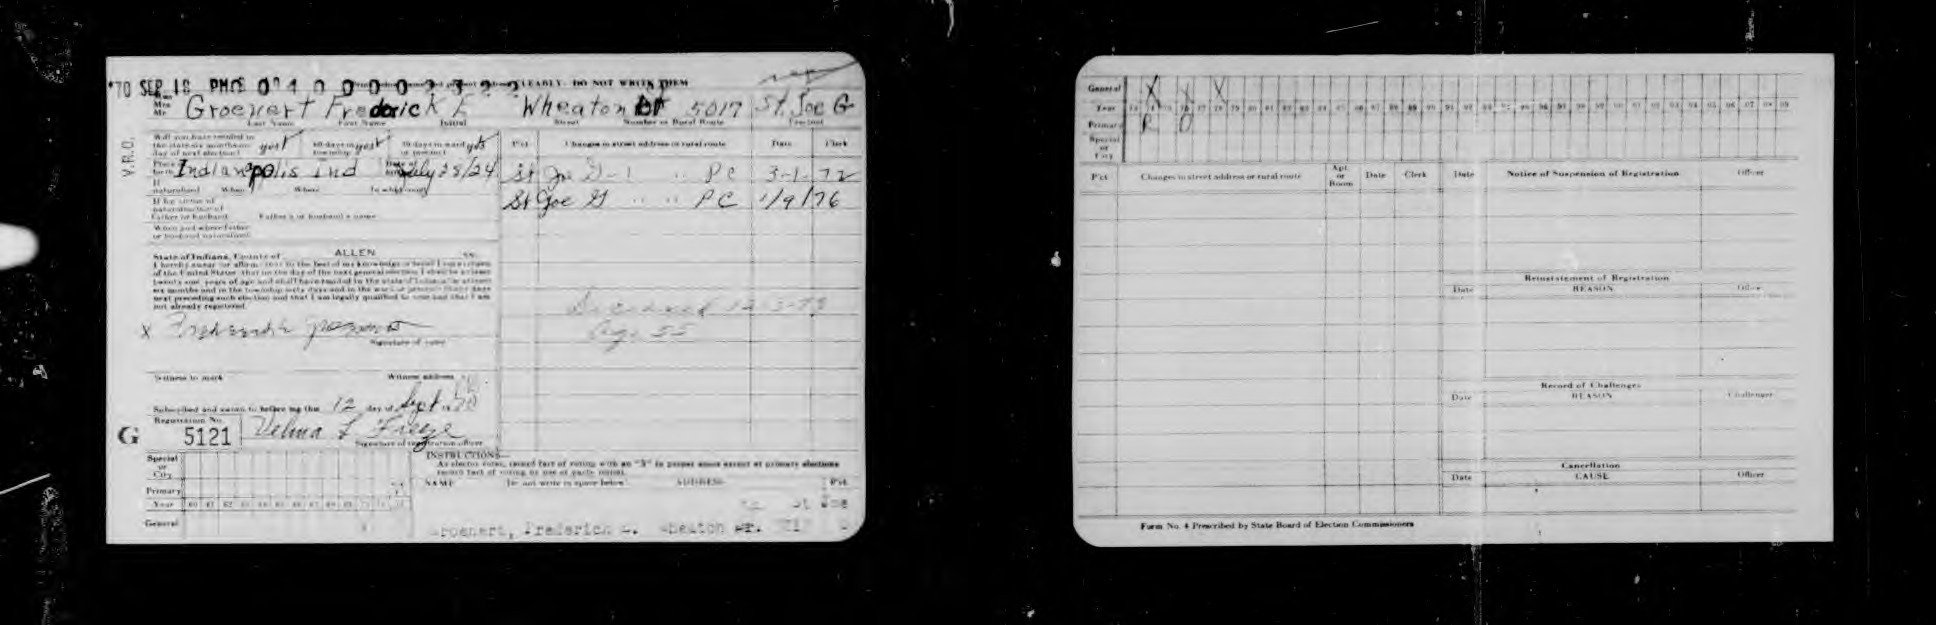 '70 SEP 18 PM
CLEARLY. DO NOT WRITE THEM
Mrs
Mr Groenert Frederick E Wheaton Dr 5017 St. Joe G
Last Name First Name Initial Street Number or Rural Route Precinct
V.R.O.
Will you have resided in
the state six months on
day of next election? yes 60 days in township yes 30 days in ward or precinct yes
Pct Changes in street address or rural route Date Clerk
Place of birth Indianapolis Ind Date of birth July 28/24
St Joe G-1 " " PC 3-1-72
If naturalized When Where In what court
St Joe G " " PC 1/9/76
If by virtue of
naturalization of
Father or husband Father's or husband's name
When and where father
or husband naturalized
State of Indiana, County of ALLEN SS:
I hereby swear (or affirm) that to the best of my knowledge or belief I am a citizen
of the United States, that on the day of the next general election I shall be at least
twenty-one years of age and shall have resided in the state of Indiana for at least
six months and in the township sixty days and in the ward or precinct thirty days
next preceding such election and that I am legally qualified to vote and that I am
not already registered.
Deceased 12-3-79
Age 55
X Frederick Groenert
Signature of voter
Witness to mark Witness address
Subscribed and sworn to before me this 12 day of Sept 1970
Registration No.
G 5121 Velma L Freeze
Signature of registration officer
Special
or
City
Primary
Year 60 61 62 63 64 65 66 67 68 69
General
INSTRUCTIONS—
As elector votes, record fact of voting with an "X" in proper space except at primary elections
record fact of voting by use of party initial.
NAME (Do not write in space below) ADDRESS Pct
St Joe
Groenert, Frederick E. Wheaton Dr. G
General X X X
Year
Primary R D
Special
or
City
Pct Changes in street address or rural route Apt. or Room Date Clerk
Date Notice of Suspension of Registration Officer
Reinstatement of Registration
Date REASON Officer
Record of Challenges
Date REASON Challenger
Cancellation
Date CAUSE Officer
Form No. 4 Prescribed by State Board of Election Commissioners